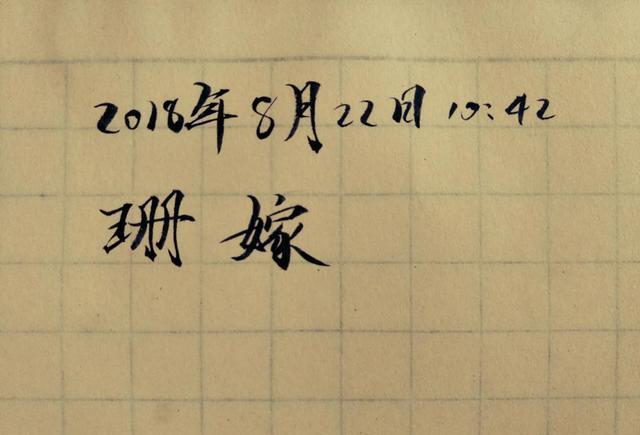 2018年8月22日 10:42
珊 嫁